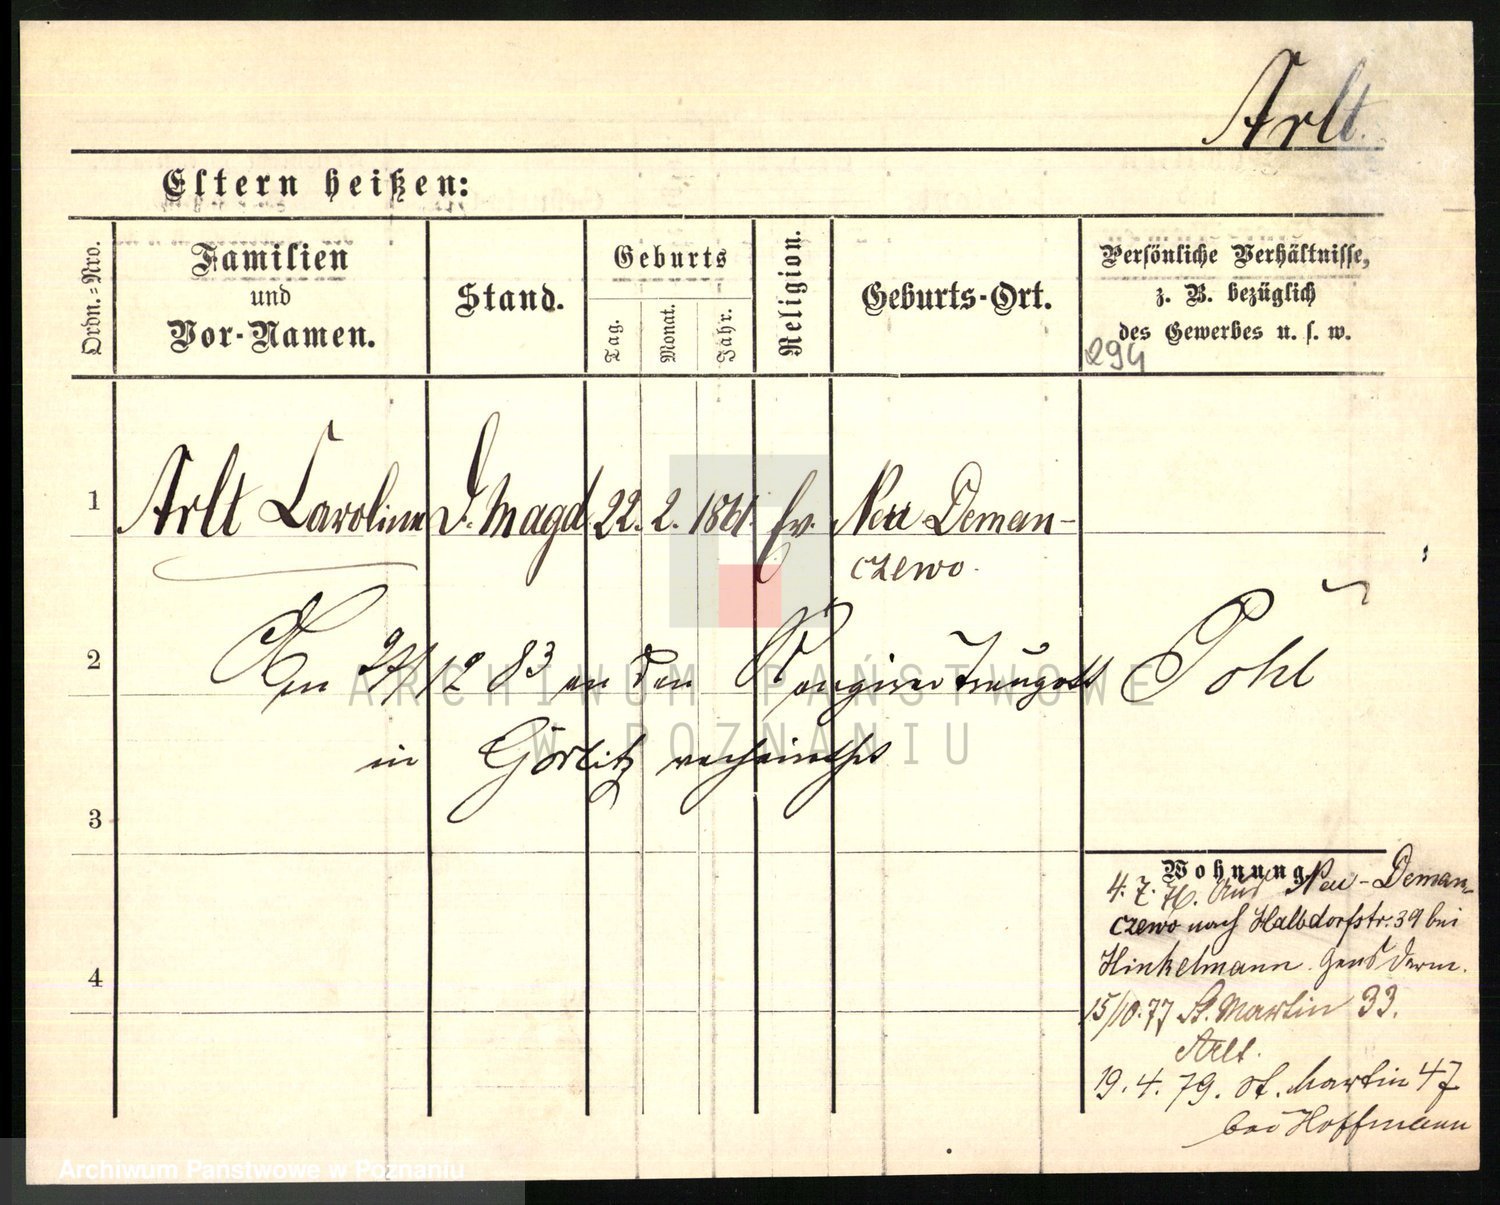 Arlt.
Eltern heißen:
Ordn.-Nro.
Familien
und
Vor-Namen.
Stand.
Geburts
Tag.
Monat.
Jahr.
Religion.
Geburts-Ort.
Persönliche Verhältnisse,
z. B. bezüglich
des Gewerbes u. s. w.
294
1
Arlt Caroline
D. Magd
22. 2. 1861.
Ev.
Neu Deman-
czewo.
2
Am 27/12 83 an den Traugott Pohl
in Görlitz verheirathet
3
4
Wohnung.
4. 7. 76. Aus Neu-Deman-
czewo nach Halbdorfstr. 39 bei
Hinkelmann. Gensdarm.
15/10.77 St. Martin 33.
Arlt.
19. 4. 79. St. Martin 47
bei Hoffmann
ARCHIWUM PAŃSTWOWE
W POZNANIU
Archiwum Państwowe w Poznaniu